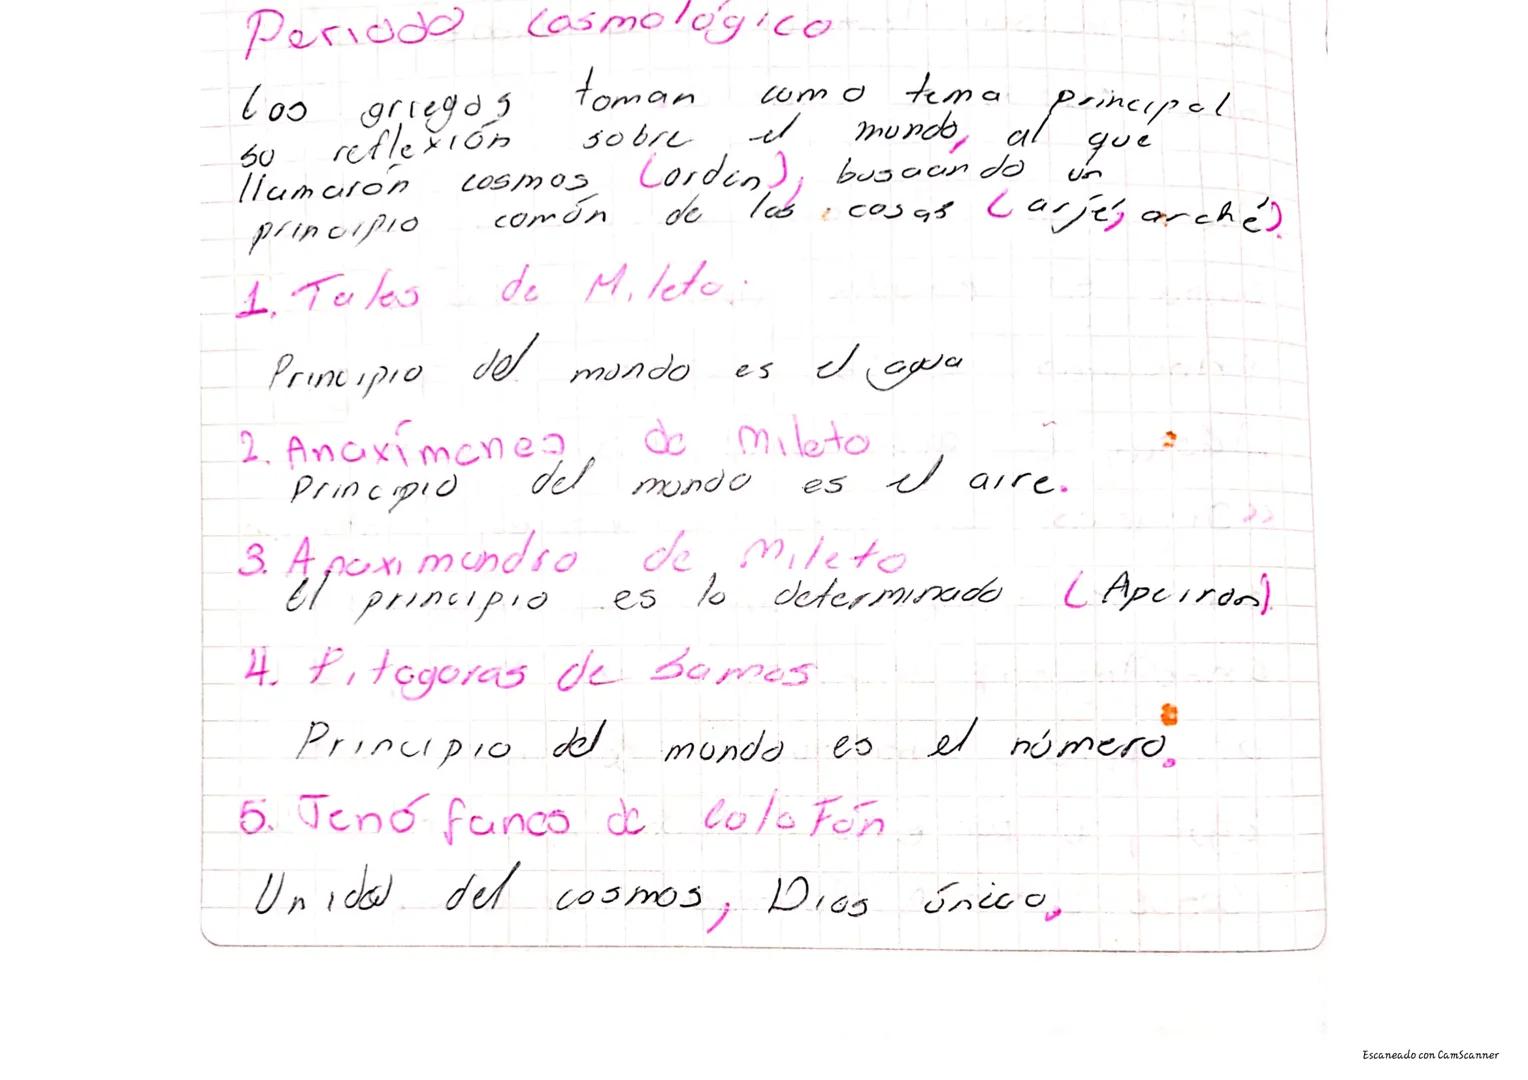 Periodo Cosmológico
Los griegos toman como tema principal
su reflexión sobre el mundo, al que
llamarón cosmos (orden), busacando un
principio común de las cosas (arjé, arché).
1. Tales de Mileto:
Principio del mundo es el agua
2. Anaxímenes de Mileto
Principio del mundo es el aire.
3. Anaximandro de Mileto
El principio es lo determinado (Apeiron).
4. Pitagoras de Samos
Principio del mundo es el número.
5. Jenófanes de Colofón
Unidad del cosmos, Dios único.
Escaneado con CamScanner